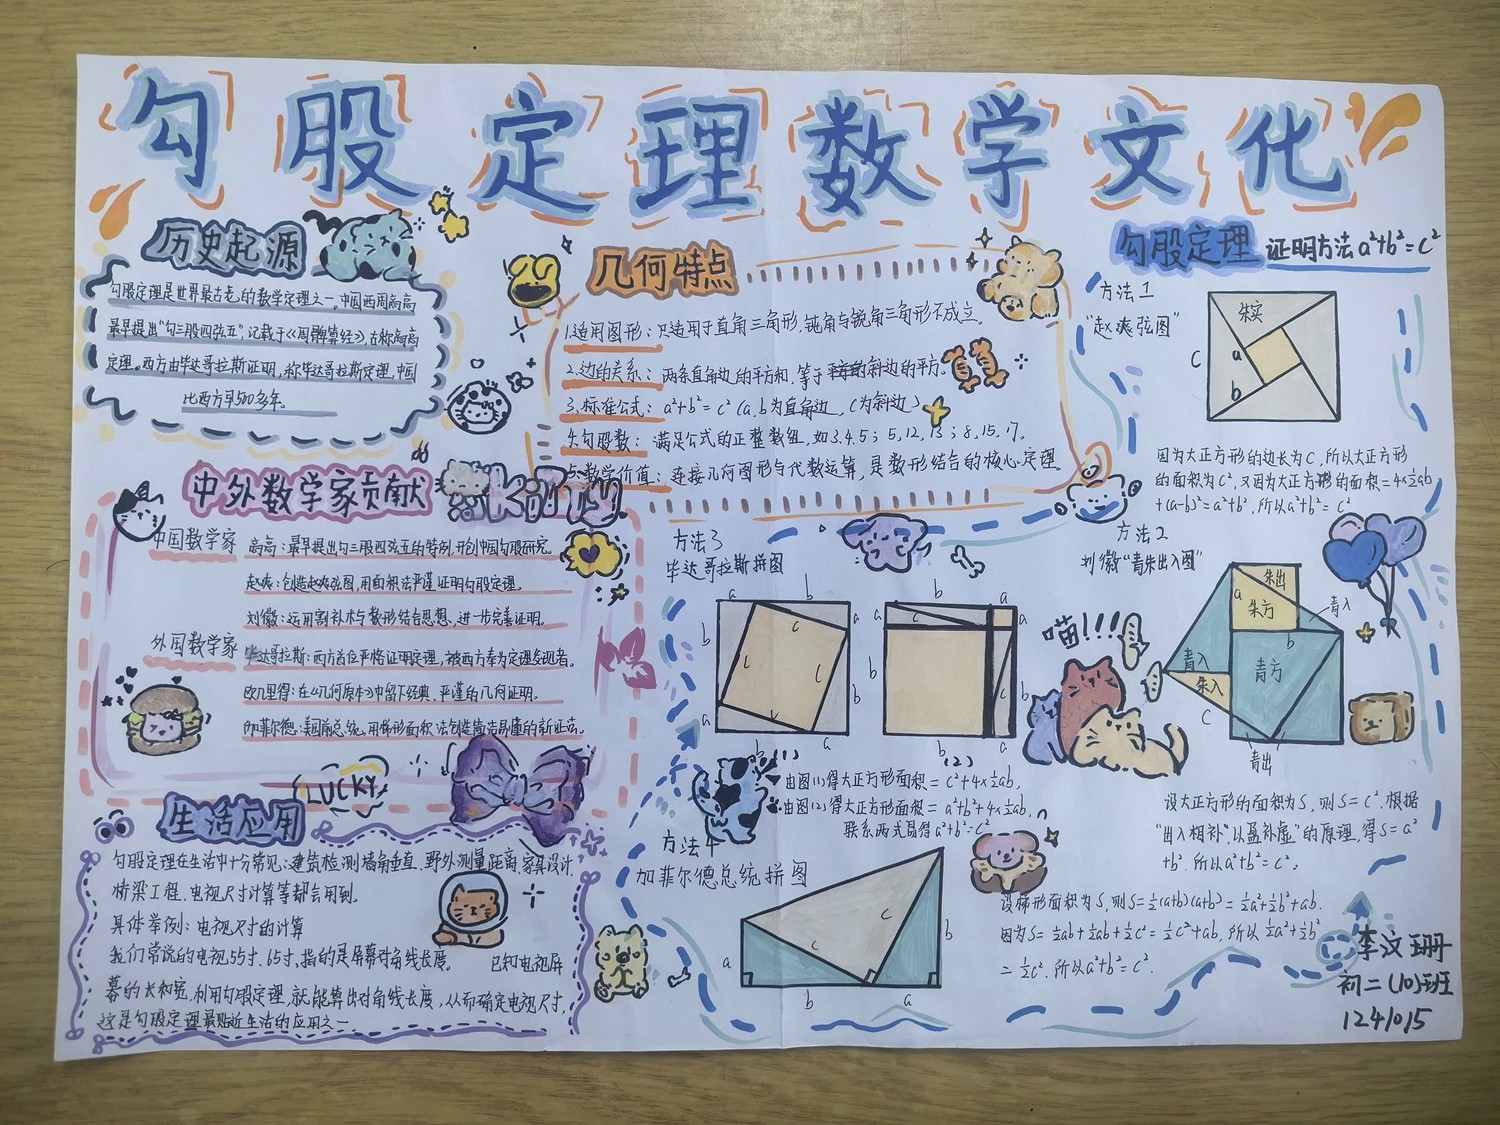 勾股定理数学文化
历史起源
勾股定理是世界最古老的数学定理之一,中国西周商高
最早提出"勾三股四弦五",记载于《周髀算经》,在称商高
定理。西方由毕达哥拉斯证明,称毕达哥拉斯定理,中国
比西方早500多年。
中外数学家贡献
中国数学家
商高:最早提出勾三股四弦五的特例,开创中国勾股研究。
赵爽:创造赵爽弦图,用面积法严谨证明勾股定理。
刘徽:运用割补术与数形结合思想,进一步完善证明。
外国数学家
毕达哥拉斯:西方首位严格证明定理,被西方奉为定理发现者。
欧几里得:在《几何原本》中留下经典、严谨的几何证明。
加菲尔德:美国前总统,用梯形面积法创造简洁易懂的新证法。
LUCKY
生活应用
勾股定理在生活中十分常见:建筑检测墙角垂直、野外测量距离、家具设计、
桥梁工程、电视尺寸计算等都会用到。
具体举例:电视尺寸的计算
我们常说的电视55寸、65寸,指的是屏幕对角线长度。 已知电视屏
幕的长和宽,利用勾股定理,就能算出对角线长度,从而确定电视尺寸,
这是勾股定理最贴近生活的应用之一
几何特点
1.适用图形:只适用于直角三角形,钝角与锐角三角形不成立。
2.边的关系:两条直角边的平方和,等于斜边的平方。
3.标准公式:a²+b²=c²(a、b为直角边,c为斜边)
4.勾股数:满足公式的正整数组,如3,4,5;5,12,13;8,15,17。
5.数学价值:连接几何图形与代数运算,是数形结合的核心定理。
勾股定理 证明方法a²+b²=c²
方法1
"赵爽弦图"
朱实
c
a
b
因为大正方形的边长为c,所以大正方形
的面积为c²,又因为大正方形的面积=4×½ab
+(a-b)²=a²+b²,所以a²+b²=c²
方法2
刘徽"青朱出入图"
朱出
a
朱方
青入
b
青入
青方
朱入
c
青出
喵!!!
设大正方形的面积为S,则S=c².根据
"出入相补"以盈补虚"的原理,得S=a²
+b².所以a²+b²=c²。
方法3
毕达哥拉斯拼图
a b
b c a
c c
a c b
b a
(1)
b a
a a
b b
c c
b a
(2)
由图(1)得大正方形面积=c²+4×½ab,
由图(2)得大正方形面积=a²+b²+4×½ab,
联系两式易得a²+b²=c²
方法4
加菲尔德总统拼图
c
b
c
a
b a
设梯形面积为S,则S=½(a+b)(a+b)=½a²+½b²+ab.
因为S=½ab+½ab+½c²=½c²+ab,所以½a²+½b²
=½c².所以a²+b²=c².
李汶珊
初二(10)班
1241015